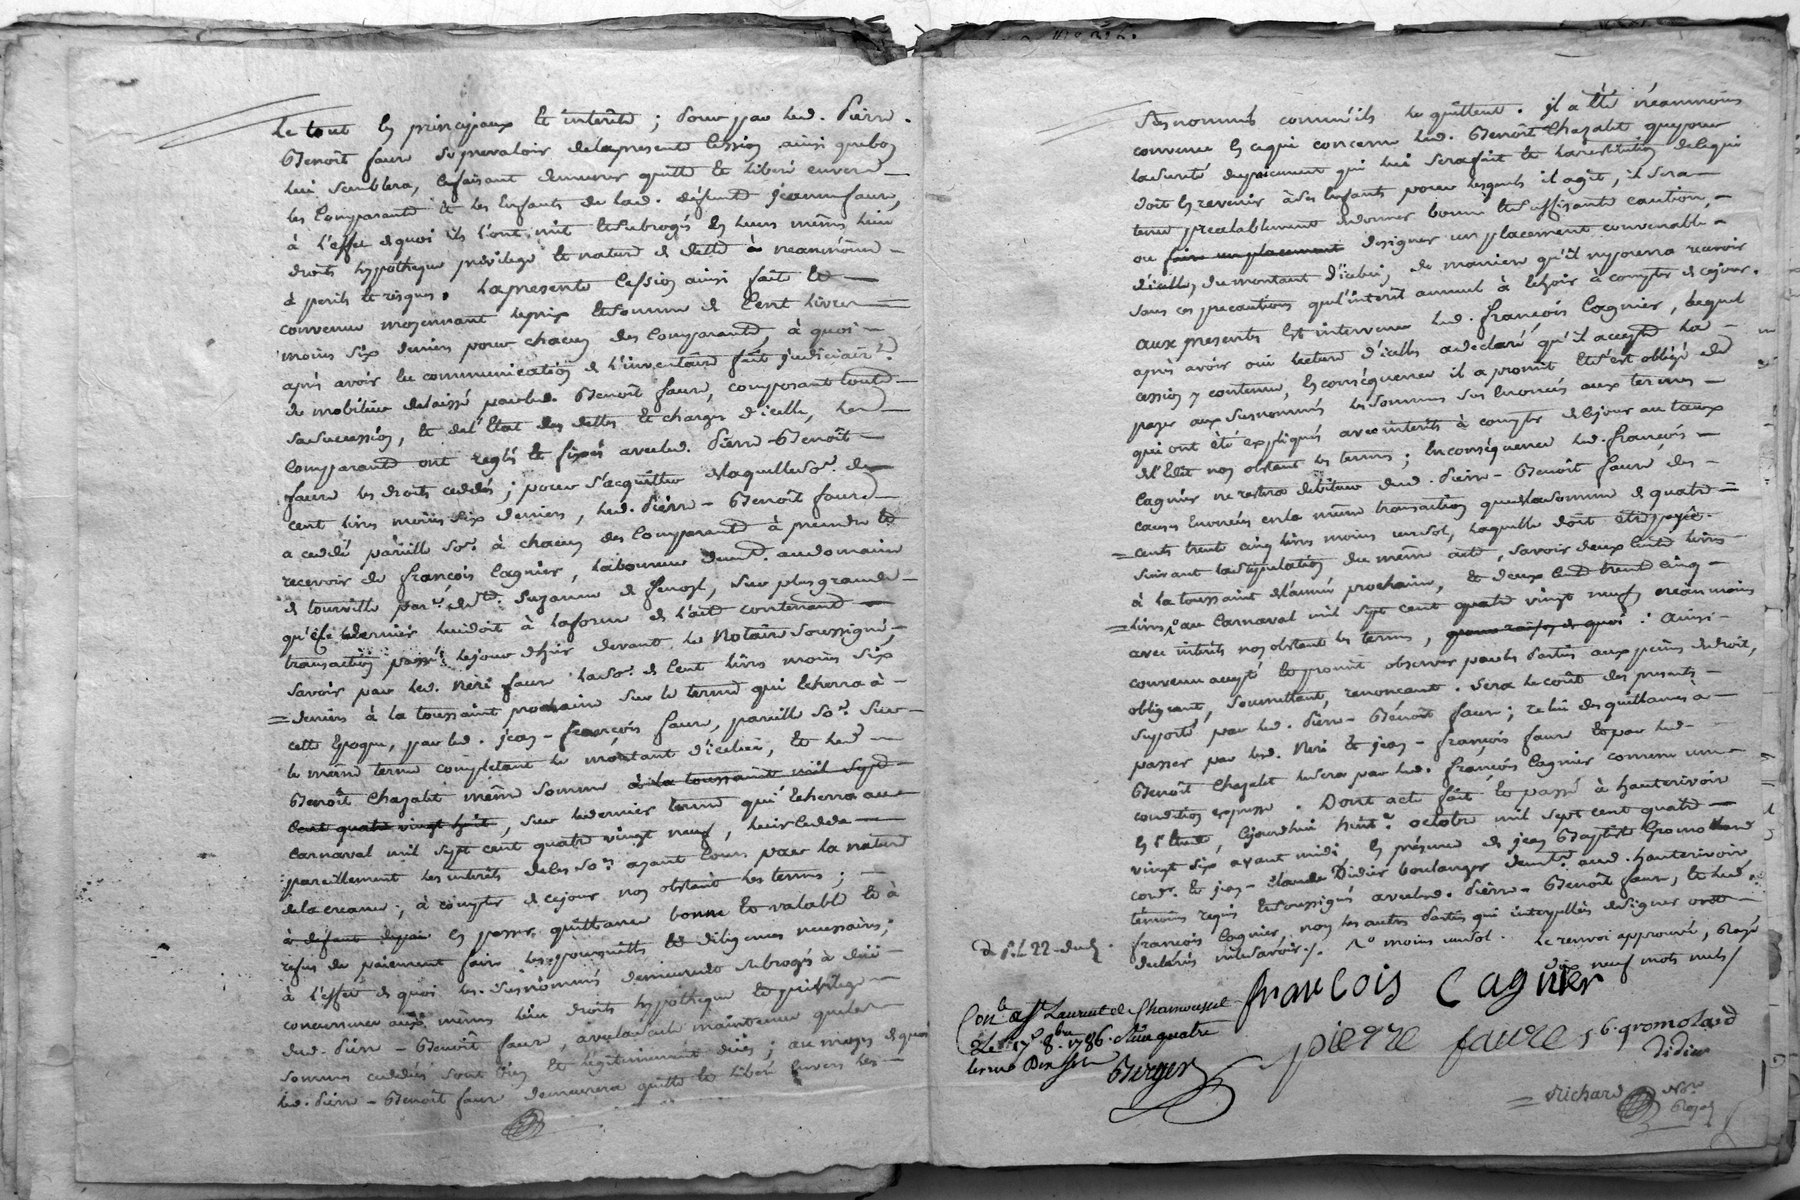 Le tout en principaux et interêts ; pour par led. Pierre
Benoît faure se prevaloir delapresente Cession ainsi quebon
lui semblera, Cefaisant demeurer quitte et liberé envers
les Comparants et les Enfants de lad. défunte jeannefaure,
à l'effet dequoi ils l'ont mit etsubrogés en leurs mêmes lieu
droits hypotheque privilege et nature de dette à neanmoins
à perils et risques. Lapresente Cession ainsi faite et
convenue moyennant leprix etsomme de Cent livres
moins six deniers pour chacun des Comparants, à quoi
après avoir eu communication de l'inventaire fait judiciairt.
du mobilier delaissé parled. Benoît faure, composant toute
sasuccession, et del'Etat des dettes et charges d'icelle, les
Comparants ont reglés et fixés avecled. Pierre Benoît
faure les droits cedés ; pour s'acquitter delaquelle so.e de
cent livres moins six deniers, led. Pierre - Benoît faure
a cedé pareille so.e à chacun des Comparants à prendre et
recevoir de françois Cagnier, laboureur demt. audomaine
de tourville par.e dud. Suzanne de fenost, sur plus grande
qu'ele dernier luidoit à laforme de l'acte contenant
transaction passé lejour d'hier devant le Notaire soussigné,
savoir par led. Neri faure laso.e de Cent livres moins six
= deniers à la toussaint prochaine sur le terme qui écherra à
cette Epoque, par led. jean - françois faure, pareille so.e sur
le même terme completant le montant d'icelui, et led.
Benoît Chazalet même somme à la toussaint mil sept
cent quatre vingt huit, sur ledernier terme qui écherra au
Carnaval mil sept cent quatre vingt neuf, leurcedde
pareillement les interêts deles so.es ayant Cours par la nature
delacreance, à compter de cejour non obstant les termes ;
à defaut depaie en passer quittance bonne et valable et à
refus de paiement faire lespoursuites et diligences necessaires ;
à l'effet de quoi les susnommés demeurent subrogés à due
concurrence aux mêmes lieu droits hypotheque et privilege
dud. Pierre - Benoît faure, avec laclause maintenue queles
sommes cedées sont bien et légitimement dües ; au moyen de quoi
led. Pierre - Benoît faure demeurera quitte et liberé Envers les
Susnommés comm'ils le quittent. il a été néanmoins
convenu en cequi concerne led. Benoît Chazalet quepour
lasureté dupaiement qui lui serafait et larestitution dece qui
doit en revenir àses Enfants pour lesquels il agit, il sera
tenu prealablement dedonner bonne etsuffisante caution,
ou faire un placement designer un placement convenable
d'icelle, dumontant d'icelui, de maniere qu'il nepourra recevoir
sans ces precautions quel'interêt annuel à Echoir à compter de cejour.
aux presentes Est intervenu led. françois Cagnier, lequel
après avoir oui lecture d'icelles adeclaré qu'il accepte la
cession y contenue, en conséquence il a promit et s'est obligé de
payer aux susnommés lessommes sus énoncées aux termes
qui ont été expliqués avecinterêts à compter decejour au taux
de l'Edit non obstant les termes ; Enconséquence led. françois
Cagnier ne restera debiteur dud. Pierre - Benoît faure des
causes Enoncées enla même transaction quedelasomme de quatre
= cents trente cinq livres moins unsol, laquelle doit être payée
suivant lastipulation du même acte, savoir deux Cents livres
à la toussaint del'année prochaine, et deux Cent trente cinq
= livres au Carnaval mil sept cent quatre vingt neuf, neanmoins
avec interêts non obstant les termes, pour raison de quoi : ainsi
convenu accepté et promit observer parles Parties aux peines dedroit,
obligeant, soumettant, renonçant. sera lecoût des presentes
supporté par led. Pierre - Benoît faure ; celui des quittances à
passer par led. Neri et jean - françois faure et par led.
Benoît Chazalet lesera par led. françois Cagnier comme une
condition expresse. Dont acte fait et passé à hauterivoire
en l'Etude, cejourdhui huit.e octobre mil sept cent quatre
vingt six avant midi en présence de jean Baptiste Gromolard
cord.r et jean - claude Didier boulanger demts. aud. hauterivoire
témoins requis etsoussignés avecled. Pierre - Benoît faure, et led.
françois Cagnier, non les autres Parties qui interpellées designer ont
declarés nelesavoir /. N.o moins unsol. Le renvoi approuvé, Rayé
dix neuf mots nuls /
D P.L. 22 dud.
françois Cagnier
Con.lé à St Laurent de Chamousset
Le 17 8.bre 1786. Reçu quatre
livres Dix sols
Berger
pierre faure j b gromolard
Didier
= Richard No.re
Royal